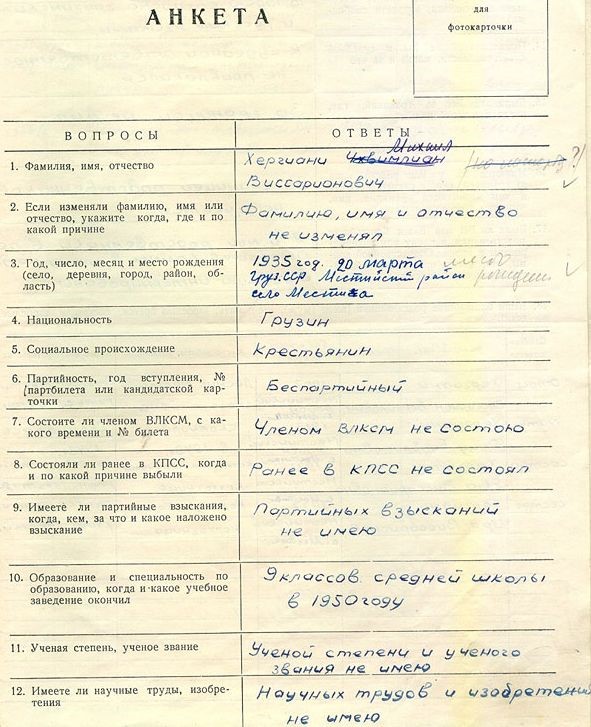 АНКЕТА
для
фотокарточки
ВОПРОСЫ
ОТВЕТЫ
1. Фамилия, имя, отчество
Михаил
Хергиани Чхвимлиан
Виссарионович
2. Если изменяли фамилию, имя или
отчество, укажите когда, где и по
какой причине
Фамилию, имя и отчество
не изменял
3. Год, число, месяц и место рождения
(село, деревня, город, район, об-
ласть)
1935 год. 20 марта место
Груз.ССР Местийский район рождения
село Местиа
4. Национальность
Грузин
5. Социальное происхождение
Крестьянин
6. Партийность, год вступления, №
партбилета или кандидатской кар-
точки
Беспартийный
7. Состоите ли членом ВЛКСМ, с ка-
кого времени и № билета
Членом ВЛКСМ не состою
8. Состояли ли ранее в КПСС, когда
и по какой причине выбыли
Ранее в КПСС не состоял
9. Имеете ли партийные взыскания,
когда, кем, за что и какое наложено
взыскание
Партийных взысканий
не имею
10. Образование и специальность по
образованию, когда и какое учебное
заведение окончил
9 классов средней школы
в 1950 году
11. Ученая степень, ученое звание
Ученой степени и ученого
звания не имею
12. Имеете ли научные труды, изобре-
тения
Научных трудов и изобретений
не имею